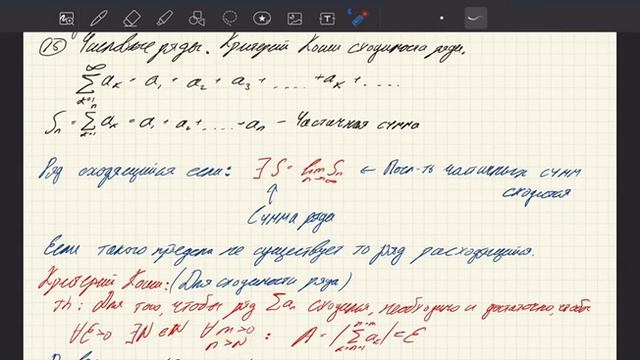 (15) Числовые ряды. Критерий Коши сходимости ряда.
∞ ∑ k=1 aₖ = a₁ + a₂ + a₃ + ..... + aₖ + .....
Sₙ = n ∑ k=1 aₖ = a₁ + a₂ + ..... + aₙ – Частичная сумма
Ряд сходящийся если: ∃ S = lim n→∞ Sₙ ← Посл-ть частичных сумм
сходится
↑
Сумма ряда
Если такого предела не существует то ряд расходящийся.
Критерий Коши: (Для сходимости ряда)
Th: Для того, чтобы ряд ∑aₙ сходился, необходимо и достаточно, чтобы
∀ε>0 ∃N∈ℕ ∀ m>0 n>N :